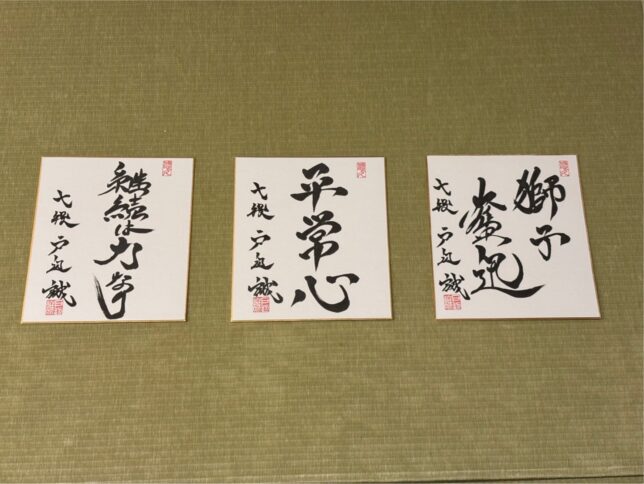 継続は力なり
七段 戸辺 誠
平常心
七段 戸辺 誠
獅子
奮迅
七段 戸辺 誠